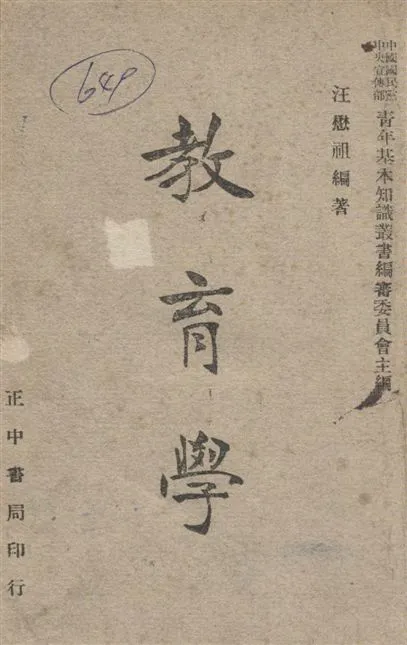 中國國民黨
中央宣傳部
青年基本知識叢書編審委員會主編
汪懋祖編著
教育學
正中書局印行
649